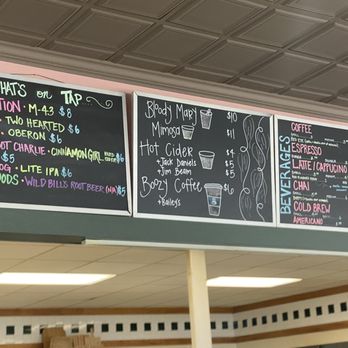 HAT'S on TAP
TION · M-43 $8
TWO HEARTED $6
OBERON $6
OT CHARLIE · CINNAMON GIRL $6
$5
OG · LITE IPA $6
ODS · WILD BILL'S ROOT BEER $5
Bloody Mary $10
Mimosa $11
Hot Cider $4
+Jack Daniels $5
+Jim Beam $5
Boozy Coffee $6
+Baileys
BEVERAGES
COFFEE
ESPRESSO
LATTE/CAPPUCINO
CHAI
COLD BREW
AMERICANO